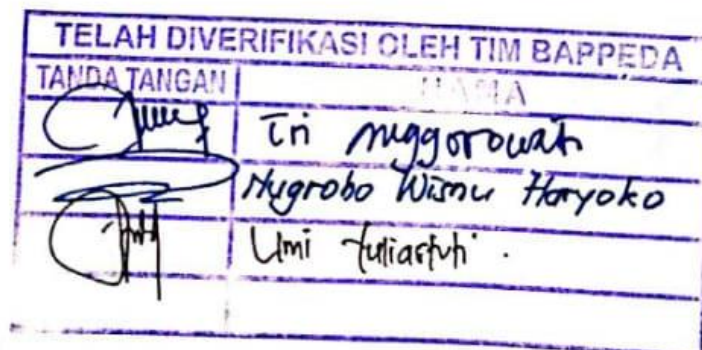 TELAH DIVERIFIKASI OLEH TIM BAPPEDA
TANDA TANGAN NAMA
Tri
Nugrobo Wisnu Haryoko
Umi Yuliastuti .